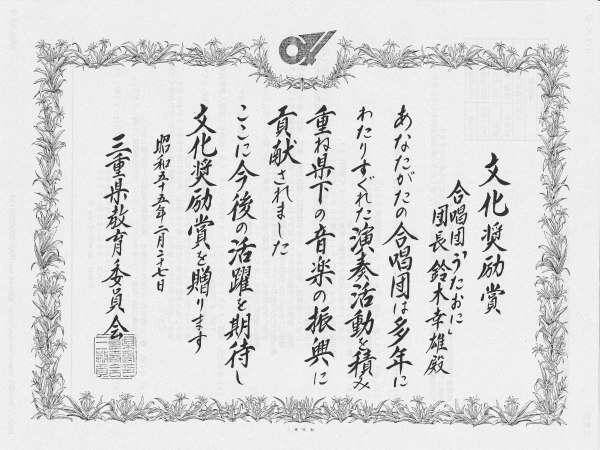 文化奨励賞
合唱団「うたおに」
団長 鈴木幸雄殿
あなたがたの合唱団は多年に
わたりすぐれた演奏活動を積み
重ね県下の音楽の振興に
貢献されました
ここに今後の活躍を期待し
文化奨励賞を贈ります
昭和五十五年二月二十七日
三重県教育委員会